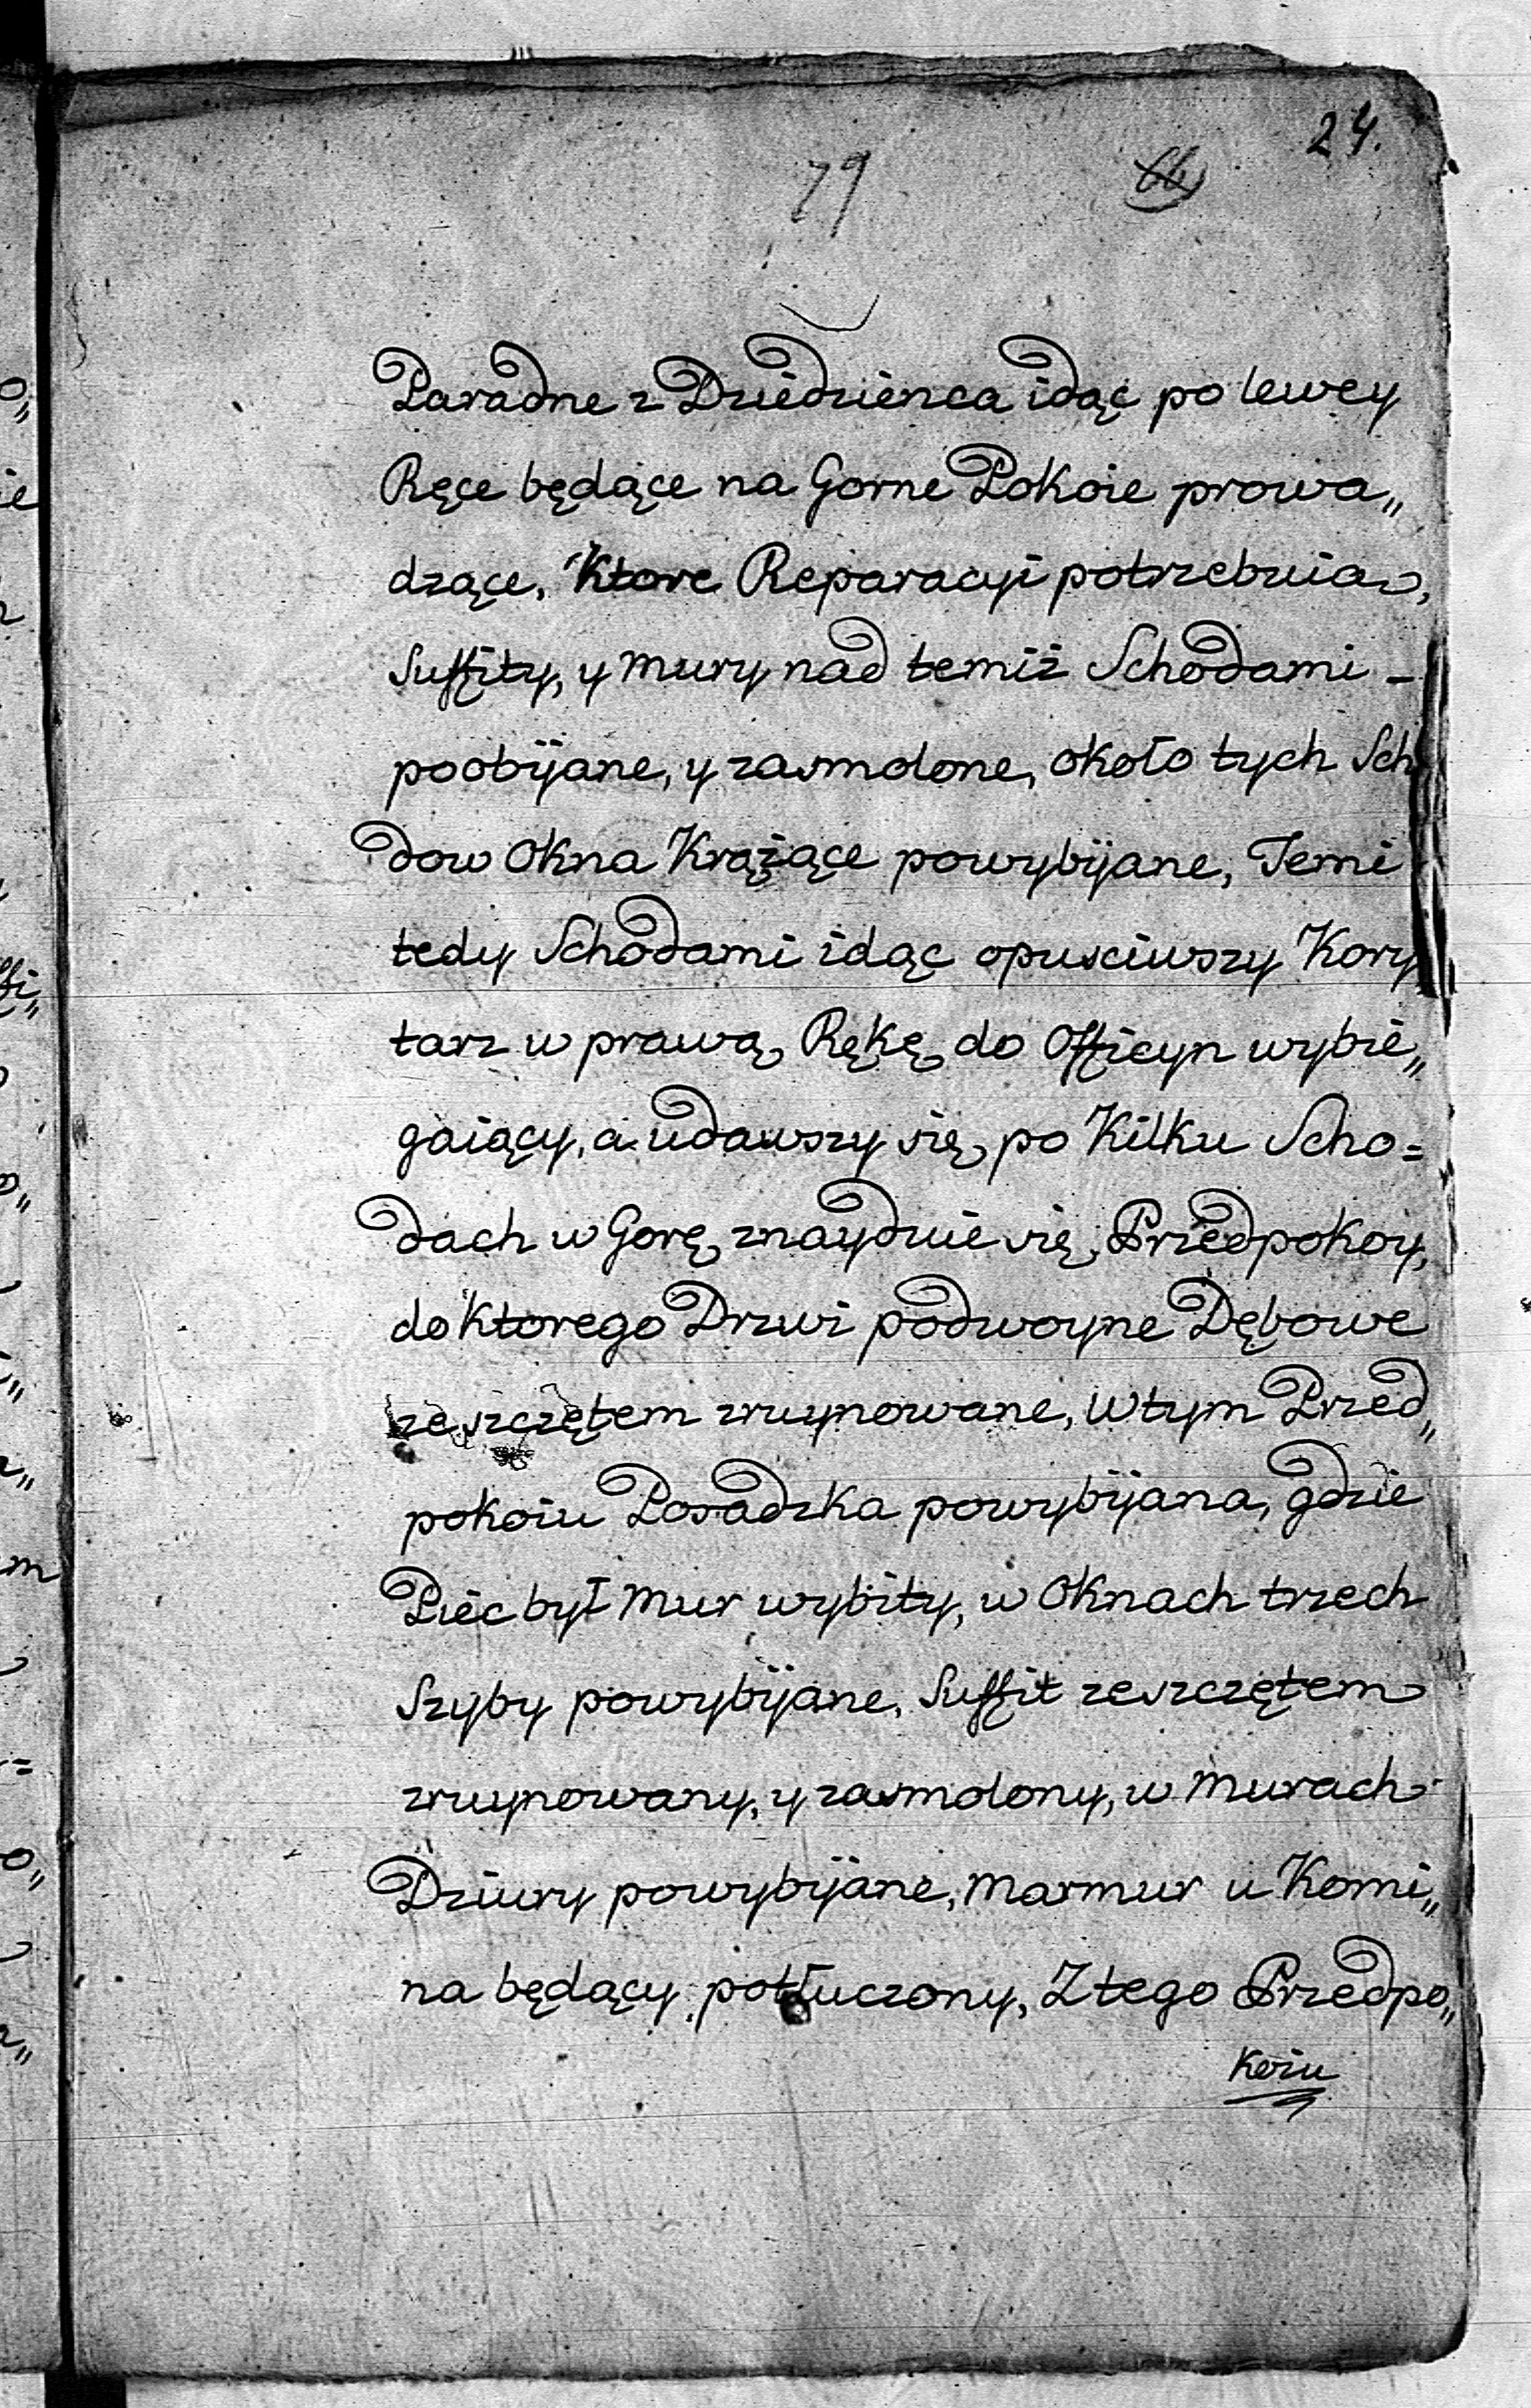 24.
79
Paradne z Dziedzienca idąc po lewey
Ręce będące na Gorne Pokoie prowa„
dzące, Ktore Reparacyi potrzebuia,
Suffity, y mury nad temiż Schodami -
poobijane, y zasmolone, około tych Sch
dow Okna Krążące powybijane, Temi
tedy Schodami idąc opusciwszy Kory
tarz w prawą Rękę do Officyn wybie„
gaiący, a udawszy się po Kilku Scho=
dach w Gorę znayduie się Przedpokoy,
do Ktorego Drzwi podwoyne Dębowe
zeszczętem zruynowane, w tym Przed„
pokoiu Posadzka powybijana, gdzie
Piec był mur wybity, w Oknach trzech
Szyby powybijane, Suffit zeszczętem
zruynowany, y zasmolony, w murach
Dziury powybijane, marmur u Komi„
na będący potłuczony, Z tego Przedpo„
koiu